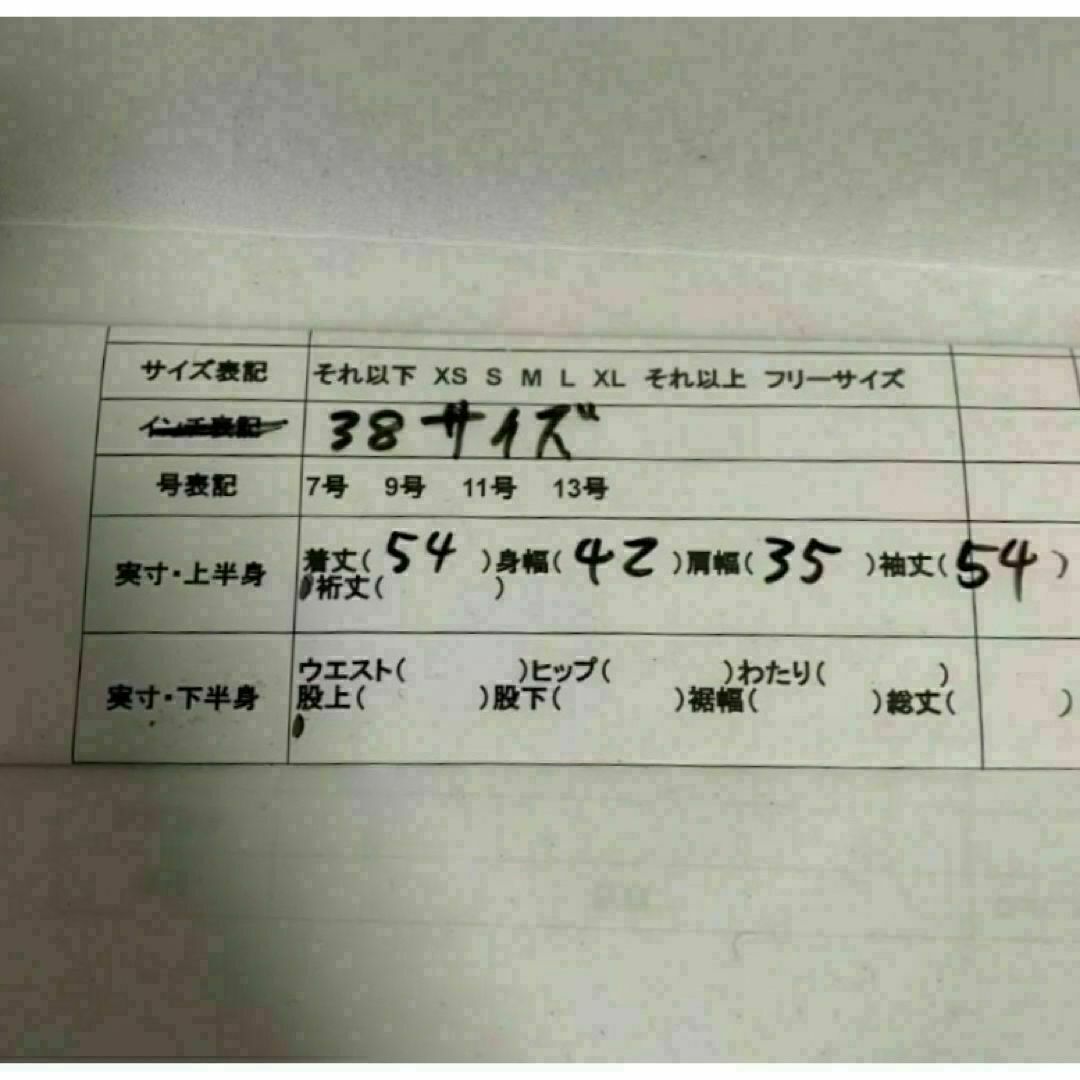 サイズ表記 それ以下 XS S M L XL それ以上 フリーサイズ
インチ表記 38サイズ
号表記 7号 9号 11号 13号
実寸・上半身 着丈( 54 )身幅( 42 )肩幅( 35 )袖丈( 54 )
裄丈( )
ウエスト( )ヒップ( )わたり( )
実寸・下半身 股上( )股下( )裾幅( )総丈( )